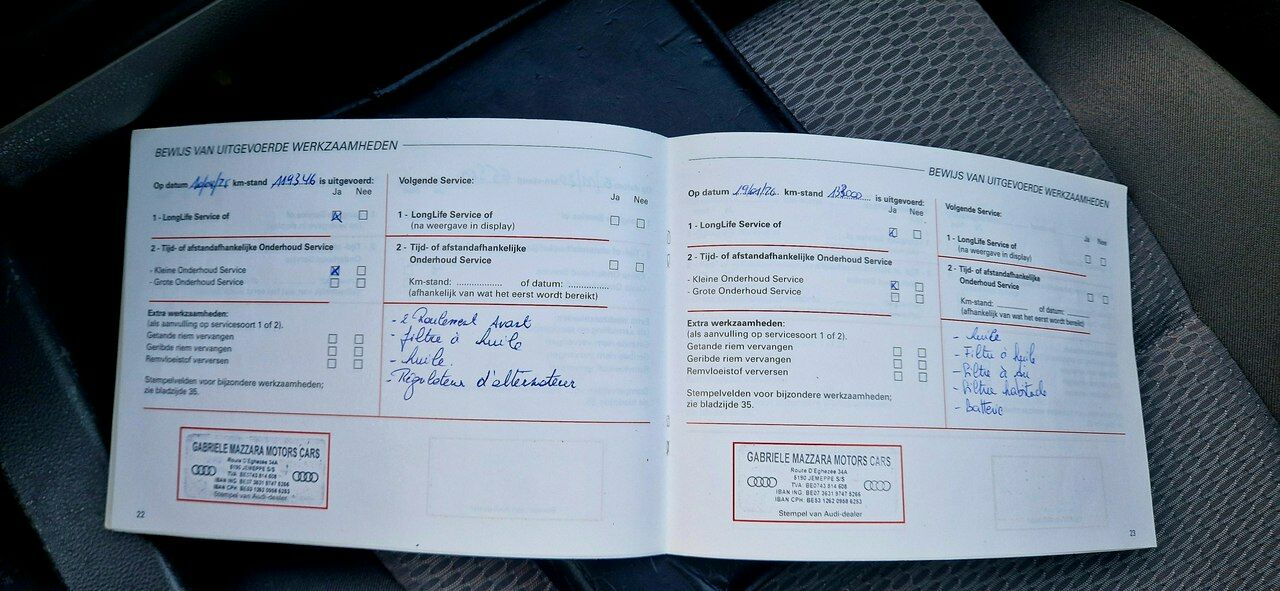 BEWIJS VAN UITGEVOERDE WERKZAAMHEDEN
Op datum km-stand 119346 is uitgevoerd:
Ja Nee
1 - LongLife Service of
2 - Tijd- of afstandafhankelijke Onderhoud Service
- Kleine Onderhoud Service
- Grote Onderhoud Service
Extra werkzaamheden:
(als aanvulling op servicesoort 1 of 2).
Getande riem vervangen
Geribde riem vervangen
Remvloeistof verversen
Stempelvelden voor bijzondere werkzaamheden;
zie bladzijde 35.
GABRIELE MAZZARA MOTORS CARS
Route D'Eghezée 34A
5190 JEMEPPE S/S
TVA: BE0743 814 608
IBAN ING: BE07 3631 9747 5266
IBAN CPH: BE53 1262 0958 6253
Stempel van Audi-dealer
22
Volgende Service:
Ja Nee
1 - LongLife Service of
(na weergave in display)
2 - Tijd- of afstandafhankelijke
Onderhoud Service
Km-stand: .................. of datum: ...............
(afhankelijk van wat het eerst wordt bereikt)
- 2 Roulement Avant
- Filtre à huile
- huile.
- Régulateur d'alternateur
BEWIJS VAN UITGEVOERDE WERKZAAMHEDEN
Op datum 19/01/26 km-stand is uitgevoerd:
Ja Nee
1 - LongLife Service of
2 - Tijd- of afstandafhankelijke Onderhoud Service
- Kleine Onderhoud Service
- Grote Onderhoud Service
Extra werkzaamheden:
(als aanvulling op servicesoort 1 of 2).
Getande riem vervangen
Geribde riem vervangen
Remvloeistof verversen
Stempelvelden voor bijzondere werkzaamheden;
zie bladzijde 35.
GABRIELE MAZZARA MOTORS CARS
Route D'Eghezée 34A
5190 JEMEPPE S/S
TVA: BE0743 814 608
IBAN ING: BE07 3631 9747 5266
IBAN CPH: BE53 1262 0958 6253
Stempel van Audi-dealer
Volgende Service:
Ja Nee
1 - LongLife Service of
(na weergave in display)
2 - Tijd- of afstandafhankelijke
Onderhoud Service
Km-stand: ........ of datum: ........
(afhankelijk van wat het eerst wordt bereikt)
- huile
- Filtre à huile
- Filtre à
- Filtre habitacle
- batterie
23